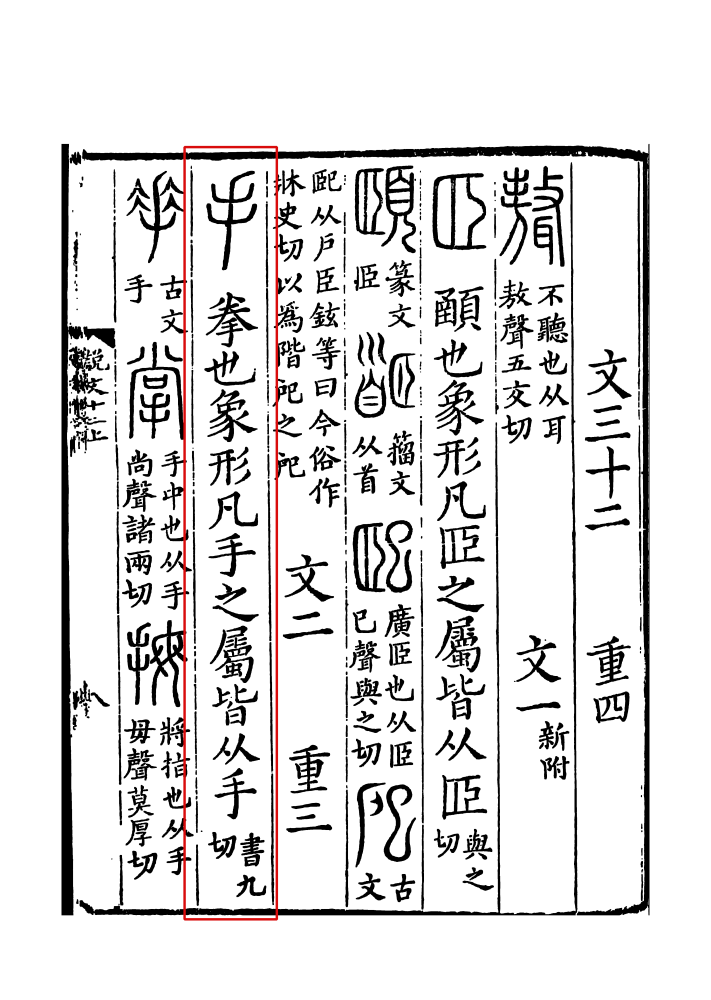 文三十二 重四
聱 不聽也从耳敖聲五交切 文一 新附
𦣞 顄也象形凡𦣞之屬皆从𦣞 與之切
頤 篆文𦣞 𩠡 籒文从首 巸 廣𦣞也从𦣞巳聲與之切 𢨪 古文
𢨪从戶臣鉉等曰今俗作牀史切以爲階戺之戺 文二 重三
手 拳也象形凡手之屬皆从手 書九切
𠂿 古文手 掌 手中也从手尚聲諸兩切 拇 將指也从手母聲莫厚切
說文十二上 八